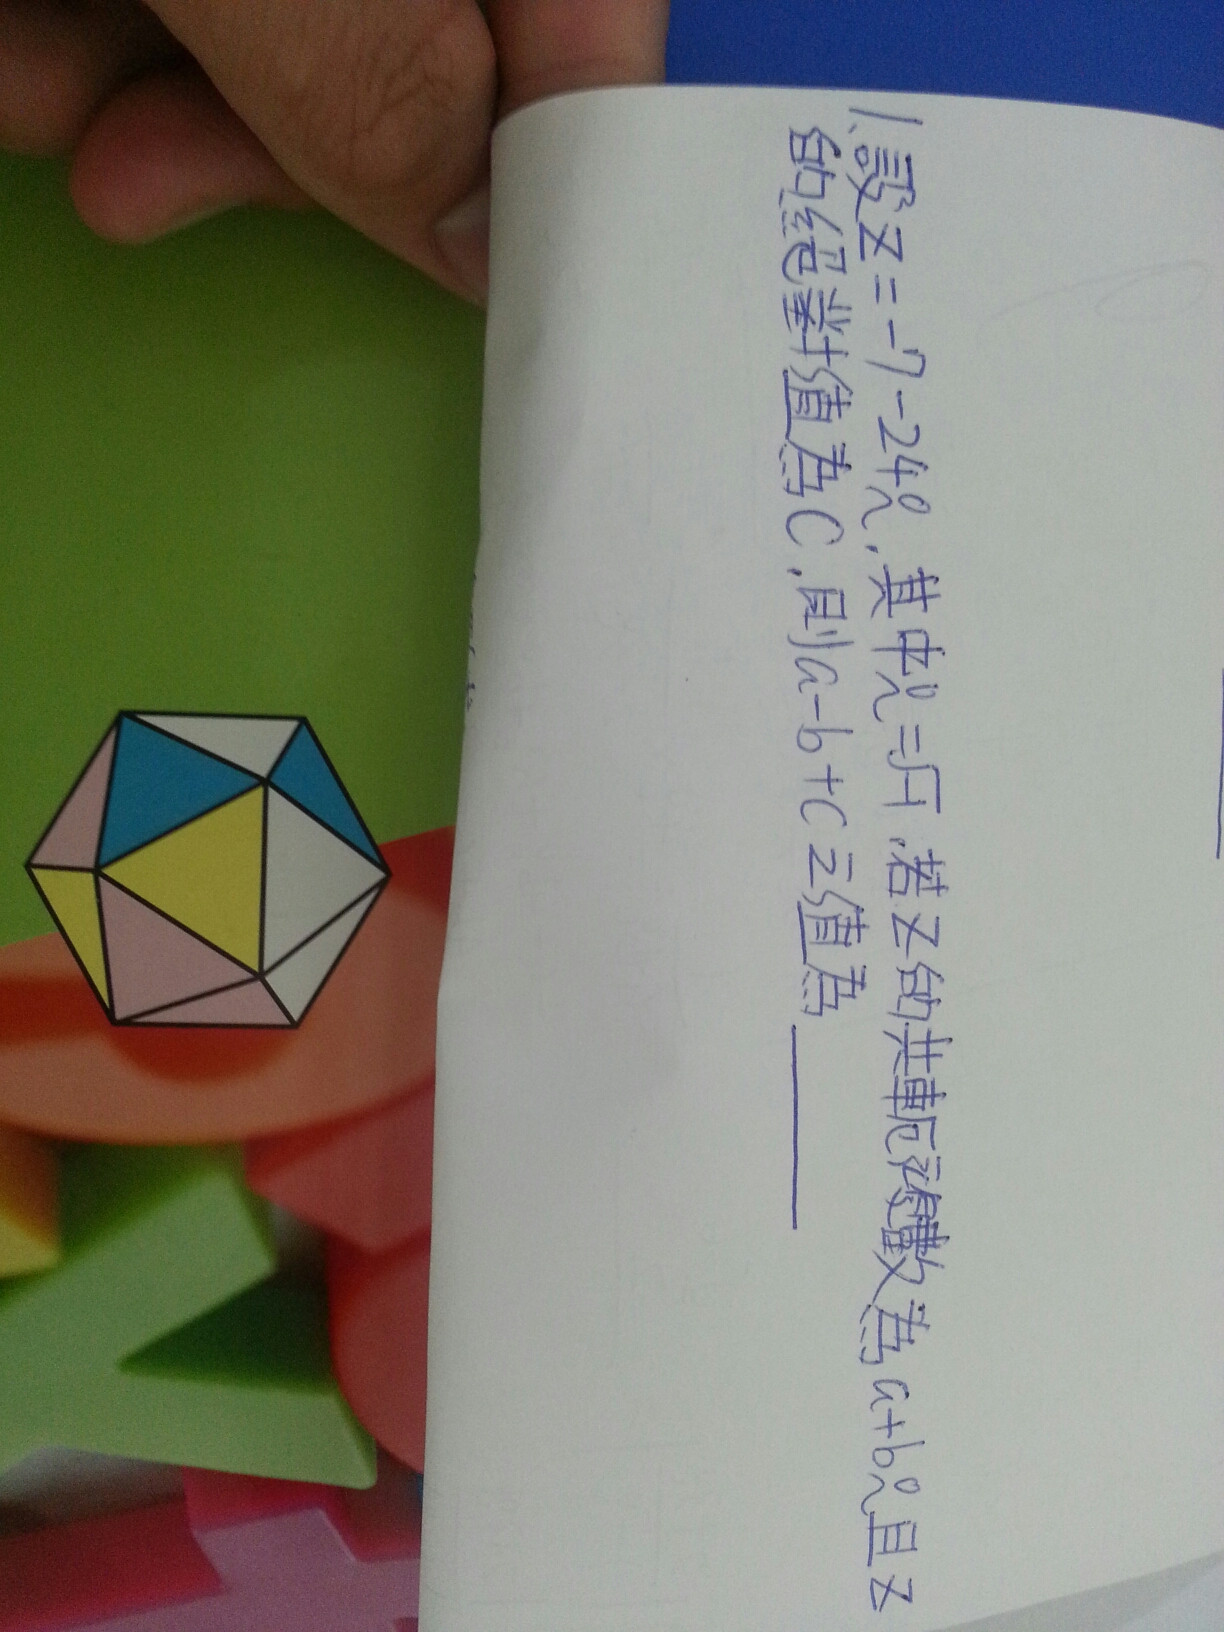 1.設Z=-7-24i,其中i=√-1,若Z的共軛複數為a+bi且Z
的絕對值為C,則a-b+c之值為______